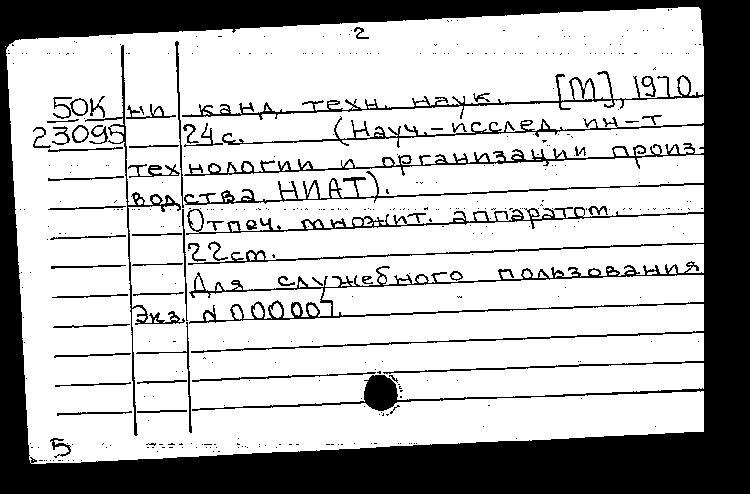 2
50К ни канд. техн. наук. [М], 1970.
23095 24с. (Науч.-исслед. ин-т
технологии и организации произ-
водства НИАТ).
Отпеч. множит. аппаратом.
22 см.
Для служебного пользования
Экз. N 000007.
5